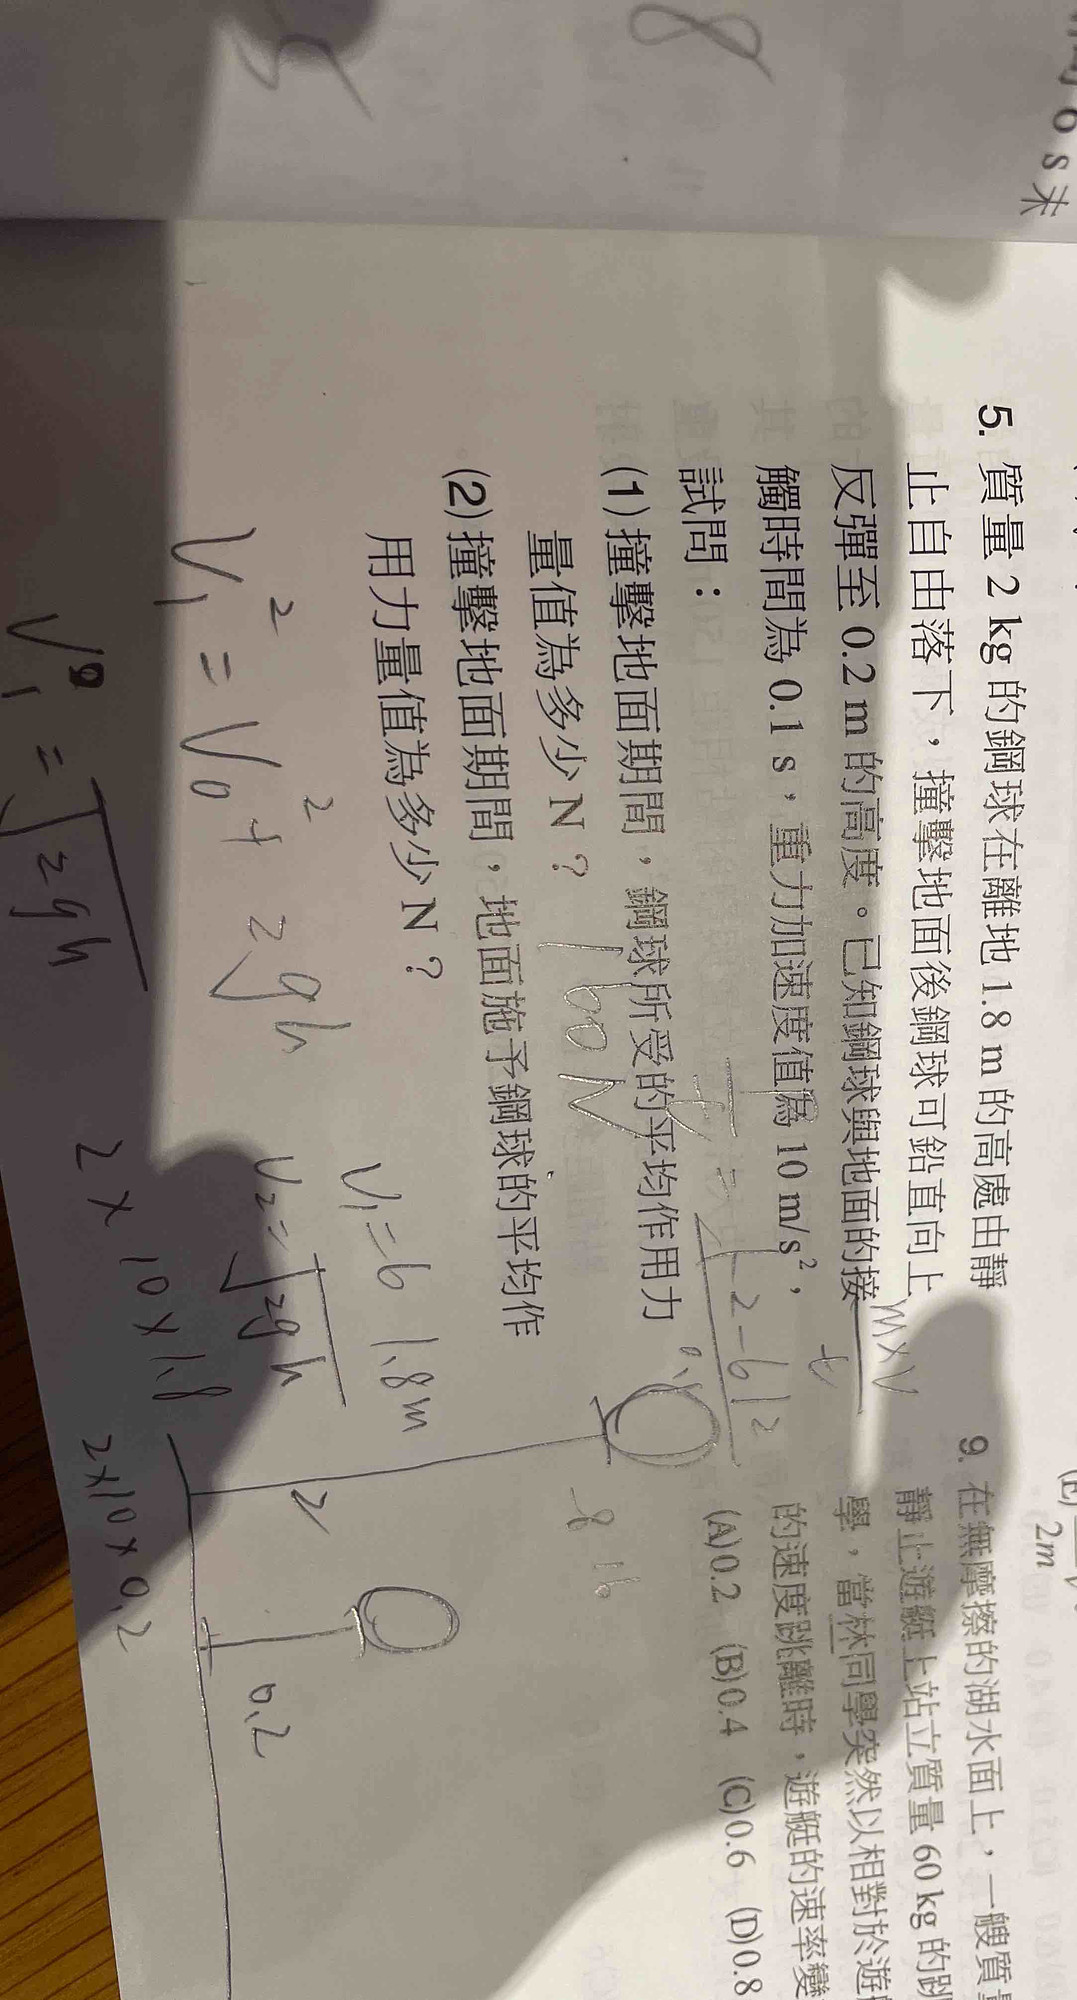 6 s 未
8
5. 質量 2 kg 的鋼球在離地 1.8 m 的高處由靜
止自由落下，撞擊地面後鋼球可鉛直向上
反彈至 0.2 m 的高度。已知鋼球與地面的接
觸時間為 0.1 s，重力加速度值為 10 m/s²，
試問：
(1)撞擊地面期間，鋼球所受的平均作用力
量值為多少 N？ 160N
(2)撞擊地面期間，地面施予鋼球的平均作
用力量值為多少 N？
V₁² = V₀² + 2gh
V₁ = √2gh
2×10×1.8
V₁=6
V₂=√2gh
1.8m
2
0.2
2×10×0.2
m×V
t
-2-6
0.1
-8
16
2m
9. 在無摩擦的湖水面上，一艘質
靜止遊艇上站立質量 60 kg 的
學，當林同學突然以相對於遊
的速度跳離時，遊艇的速率變
(A)0.2 (B)0.4 (C)0.6 (D)0.8